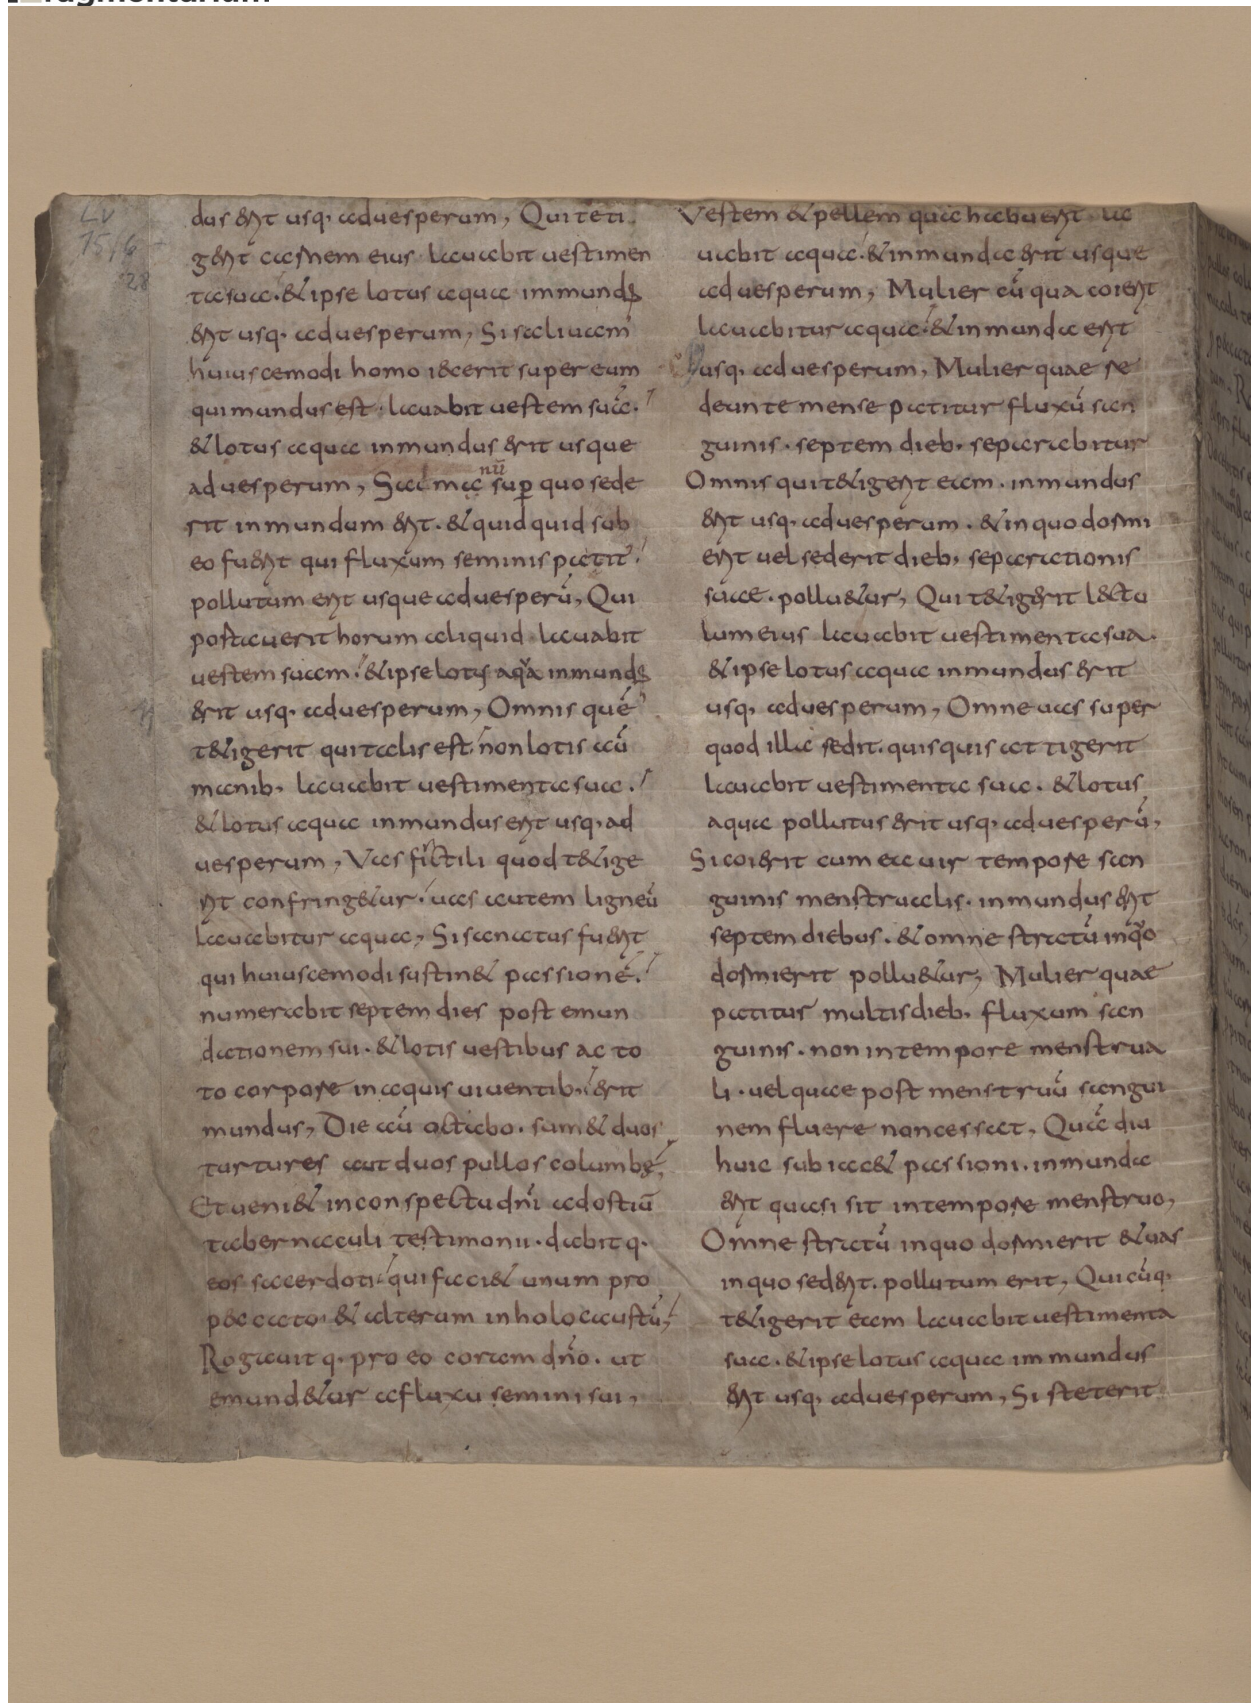 dus erit usq; aduesperum, Qui teti
gerit carnem eius lauabit uestimen
ta sua. & ipse lotus aqua immundus
erit usq; aduesperum, Si saliuam
huiuscemodi homo iecerit super eum
qui mundus est. lauabit uestem sua.
& lotus aqua inmundus erit usque
ad uesperum, Sagma nū sup quo sede
rit inmundum erit. & quidquid sub
eo fuerit qui fluxum seminis patit̄.
pollutum erit usque aduesperū, Qui
portauerit horum aliquid lauabit
uestem suam. & ipse lotus aqua inmundus
erit usq; aduesperum, Omnis quē
t&igerit qui talis est non lotis aū
manib; lauabit uestimenta sua.
& lotus aqua inmundus erit usq; ad
uesperum, Vas fictili quod t&ige
rit confring&ur. uas autem ligneū
lauabitur aqua, Si sanatus fuerit
qui huiuscemodi sustin& passionē.
numerabit septem dies post emun
dationem sui. & lotis uestibus ac to
to corpore in aquis uiuentib; erit
mundus, Die aū octabo. sum& duos
turtures aut duos pullos columbę,
Et ueni& in conspectu dn̄i ad ostiū
tabernaculi testimonii. dabit q;
eos sacerdoti qui faci& unum pro
peccato & alterum in holocaustū,
Rogauit q; pro eo coram dn̄o. ut
emund&ur a fluxu semini sui,
Vestem & pellem quae habuerit la
uabit aqua. & inmunda erit usque
ad uesperum, Mulier cū qua coierit
lauabitur aqua. & inmunda erit
usq; ad uesperum, Mulier quae re
deunte mense patitur fluxū san
guinis. septem dieb; separabitur
Omnis qui t&igerit eam. inmundus
erit usq; aduesperum. & in quo dormi
erit uel sederit dieb; separationis
suae. pollu&ur, Qui t&igerit lectu
lum eius lauabit uestimenta sua.
& ipse lotus aqua inmundus erit
usq; aduesperum, Omne uas super
quod illa sedit. quisquis attigerit
lauabit uestimenta sua. & lotus
aqua pollutus erit usq; aduesperū,
Si coierit cum ea uir tempore san
guinis menstrualis. inmundus erit
septem diebus. & omne stratū in q̊o
dormierit pollu&ur, Mulier quae
patitur multis dieb; fluxum san
guinis. non in tempore menstrua
li. uel quae post menstruū sangui
nem fluere non cessat, Quae diu
huic subiac& passioni. inmunda
erit quasi sit in tempore menstruo,
Omne stratū in quo dormierit & uas
in quo sederit. pollutum erit, Quicūq;
t&igerit eam lauabit uestimenta
sua. & ipse lotus aqua immundus
erit usq; aduesperum, Si steterit